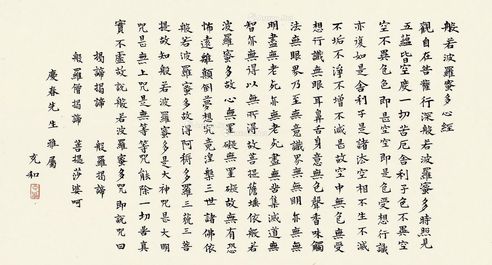 般若波羅蜜多心經
觀自在菩薩行深般若波羅蜜多時照見
五蘊皆空度一切苦厄舍利子色不異空
空不異色色即是空空即是色受想行識
亦復如是舍利子是諸法空相不生不滅
不垢不淨不增不減是故空中無色無受
想行識無眼耳鼻舌身意無色聲香味觸
法無眼界乃至無意識界無無明亦無無
明盡無老死亦無老死盡無苦集滅道無
智亦無得以無所得故菩提薩埵依般若
波羅蜜多故心無罣礙無罣礙故無有恐
怖遠離顛倒夢想究竟涅槃三世諸佛依
般若波羅蜜多故得阿耨多羅三藐三菩
提故知般若波羅蜜多是大神咒是大明
咒是無上咒是無等等咒能除一切苦真
實不虛故說般若波羅蜜多咒即說咒曰
揭諦揭諦 般羅揭諦
般羅僧揭諦 菩提莎婆呵
慶春先生雅屬
充和